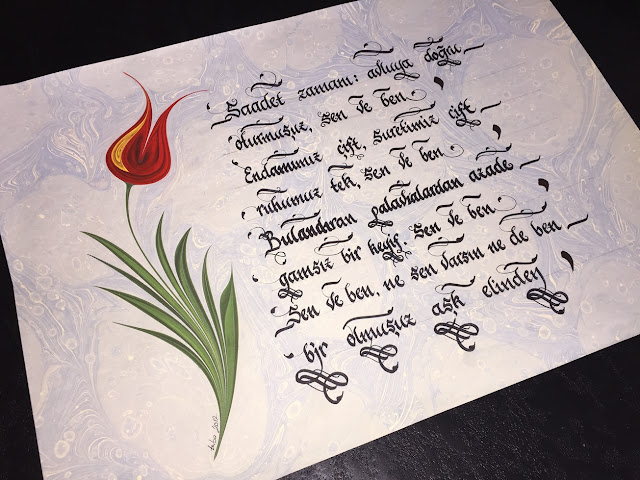 Saadet zamanı: avluya doğru
oturmuşuz, Sen ve ben
Endamımız çift, Suretimiz çift
ruhumuz tek, Sen ve ben
Bulandıran palavralardan azade
gamsız bir keyif: Sen ve ben
Sen ve ben, ne sen varsın ne de ben
bir olmuşuz aşk elinden